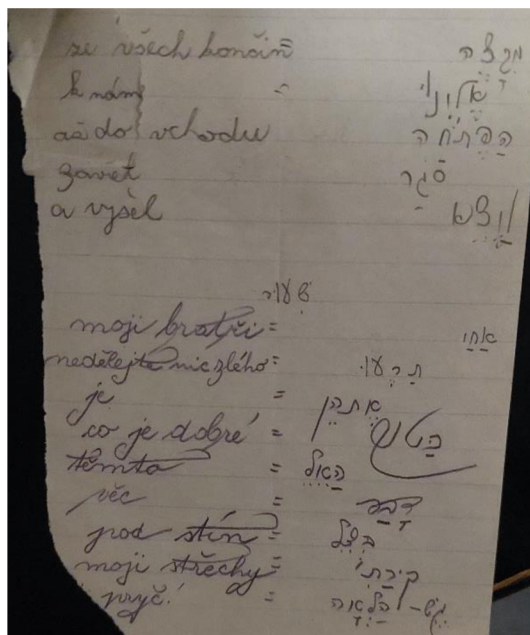 ze všech končin = מקצה
k nám = אלינו
až do vchodu הפתחה
zavřel סגר
a vyšel ויצא
moji bratři = אחי
nedělejte nic zlého = תרעו
je = אתהן
co je dobré = כטוב
těmto = האל
věc = דבר
pod stín = בצל
moji střechy = קרתי
pryč! = גש-הלאה